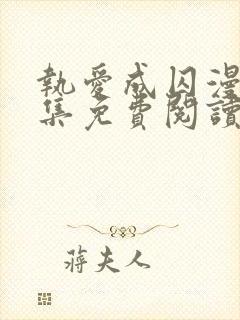 執愛成囚漫
集免費閱讀
蔣夫人